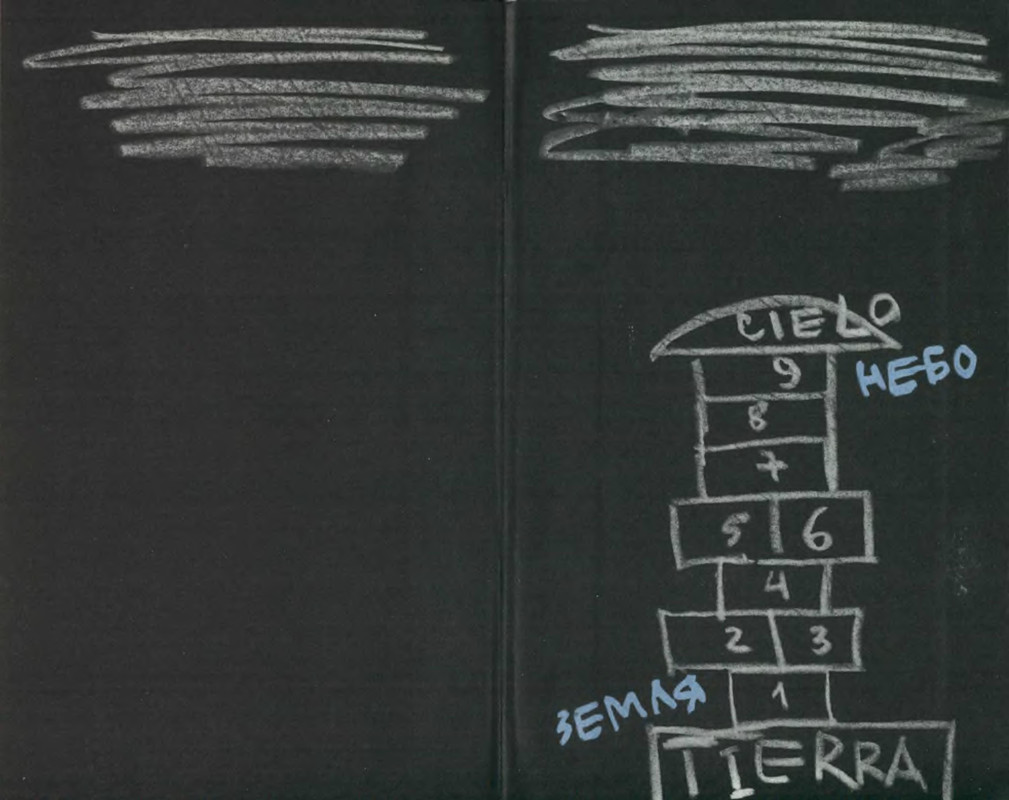 CIELO
9
НЕБО
8
7
5 6
4
2 3
1
ЗЕМЛЯ
TIERRA